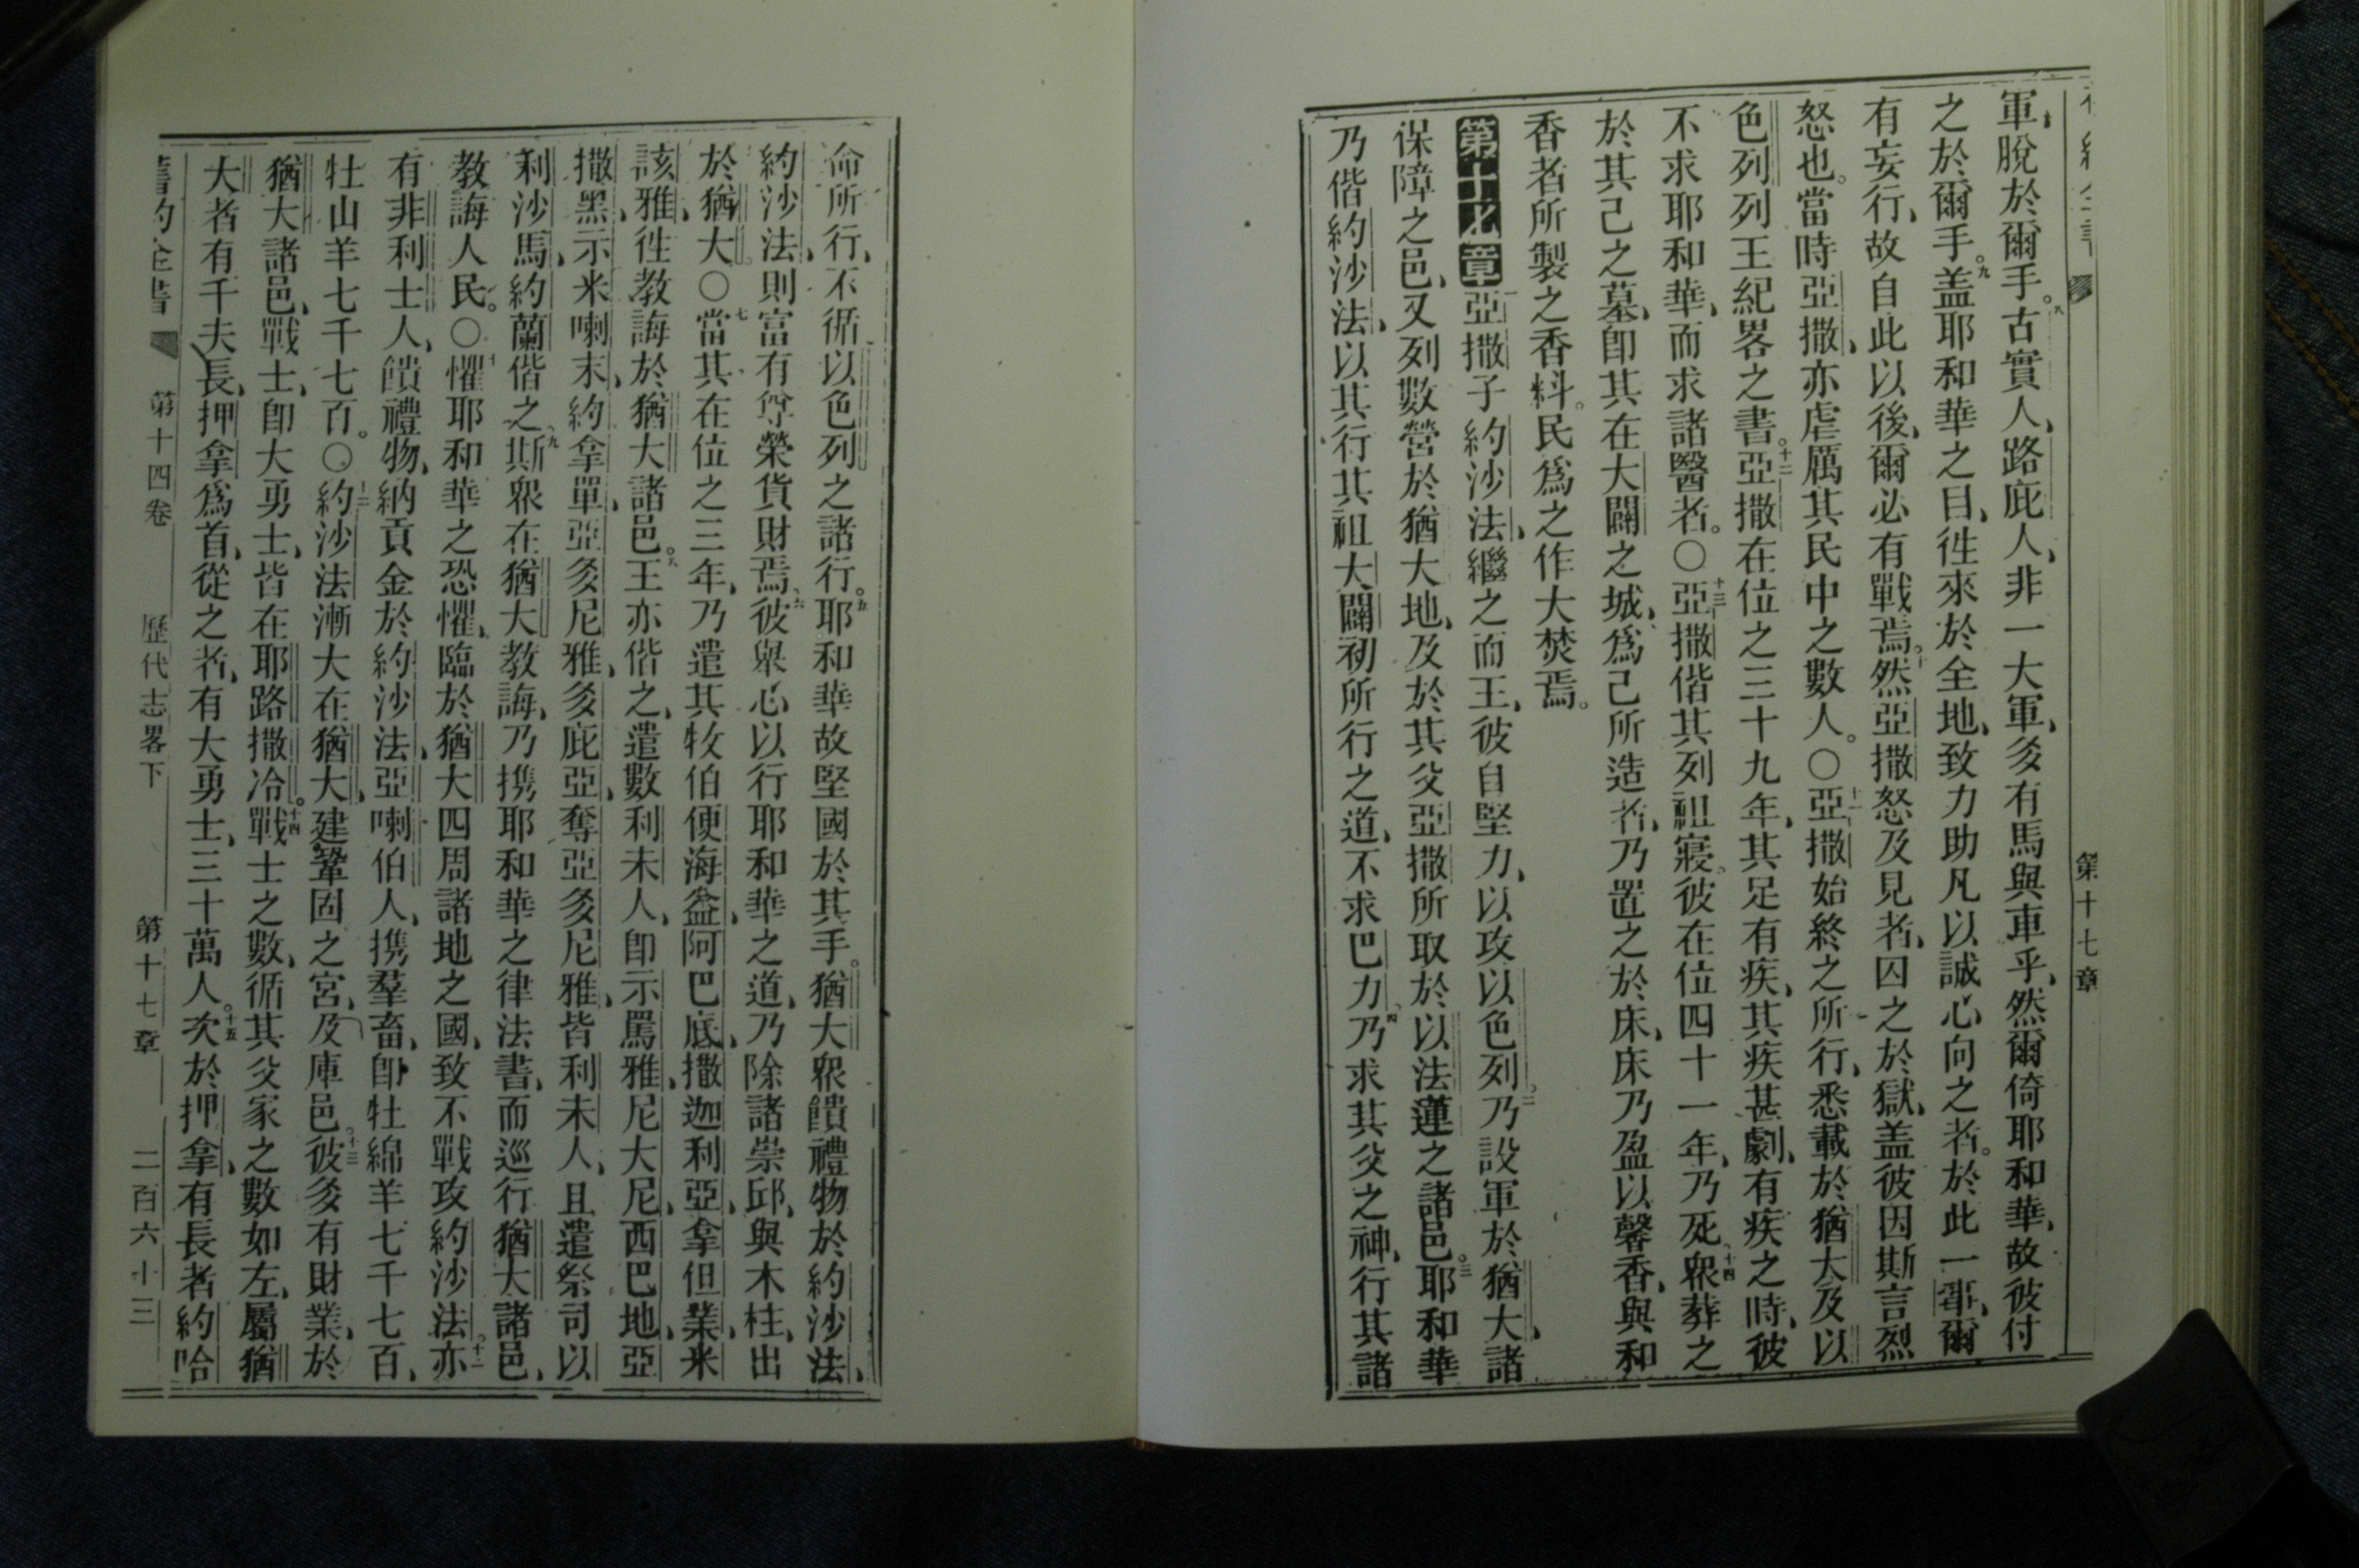 第十七章
軍、脫於爾手。八古實人、路庇人、非一大軍、多有馬與車乎、然爾倚耶和華、故彼付
之於爾手。九盖耶和華之目、徃來於全地、致力助凡以誠心向之者。於此一事、爾
有妄行、故自此以後、爾必有戰焉。十然亞撒怒及見者、囚之於獄、盖彼因斯言烈
怒也。當時亞撒、亦虐厲其民中之數人。○十一亞撒始終之所行、悉載於猶大及以
色列列王紀畧之書。十二亞撒在位之三十九年、其足有疾、其疾甚劇、有疾之時、彼
不求耶和華、而求諸醫者。○十三亞撒偕其列祖寢。彼在位四十一年、乃死、十四衆葬之
於其己之墓、卽其在大闢之城、爲己所造者、乃置之於床、床乃盈以馨香、與和
香者所製之香料。民爲之作大焚焉。
第十七章一亞撒子約沙法、繼之而王、彼自堅力、以攻以色列、二乃設軍於猶大、諸
保障之邑、又列數營於猶大地、及於其父亞撒所取於以法蓮之諸邑。三耶和華
乃偕約沙法、以其行其祖大闢初所行之道、不求巴力、四乃求其父之神、行其諸
命所行、不循以色列之諸行。五耶和華故堅國於其手。猶大衆饋禮物於約沙法、
約沙法則富有尊榮貨財焉、六彼舉心以行耶和華之道、乃除諸崇邱、與木柱、出
於猶大。○七當其在位之三年、乃遣其牧伯便海益、阿巴底、撒迦利亞、拿但業、米
該雅、徃教誨於猶大諸邑。八王亦偕之、遣數利未人、卽示罵雅、尼大尼、西巴地、亞
撒黑、示米喇末、約拿單、亞多尼雅、多庇亞、奪亞多尼雅、皆利未人、且遣祭司以
利沙馬、約蘭偕之、九斯衆在猶大教誨、乃携耶和華之律法書、而巡行猶大諸邑、
教誨人民。○十懼耶和華之恐懼、臨於猶大四周諸地之國、致不戰攻約沙法。十一亦
有非利士人、饋禮物、納貢金於約沙法、亞喇伯人、携羣畜、卽牡綿羊七千七百、
牡山羊七千七百。○十二約沙法漸大在猶大、建鞏固之宮、及庫邑、十三彼多有財業、於
猶大諸邑、戰士、卽大勇士、皆在耶路撒冷。十四戰士之數、循其父家之數如左、屬猶
大者有千夫長、押拿爲首、從之者、有大勇士、三十萬人。十五次於押拿、有長者約哈
舊約全書 第十四卷 歷代志畧下 第十七章 二百六十三